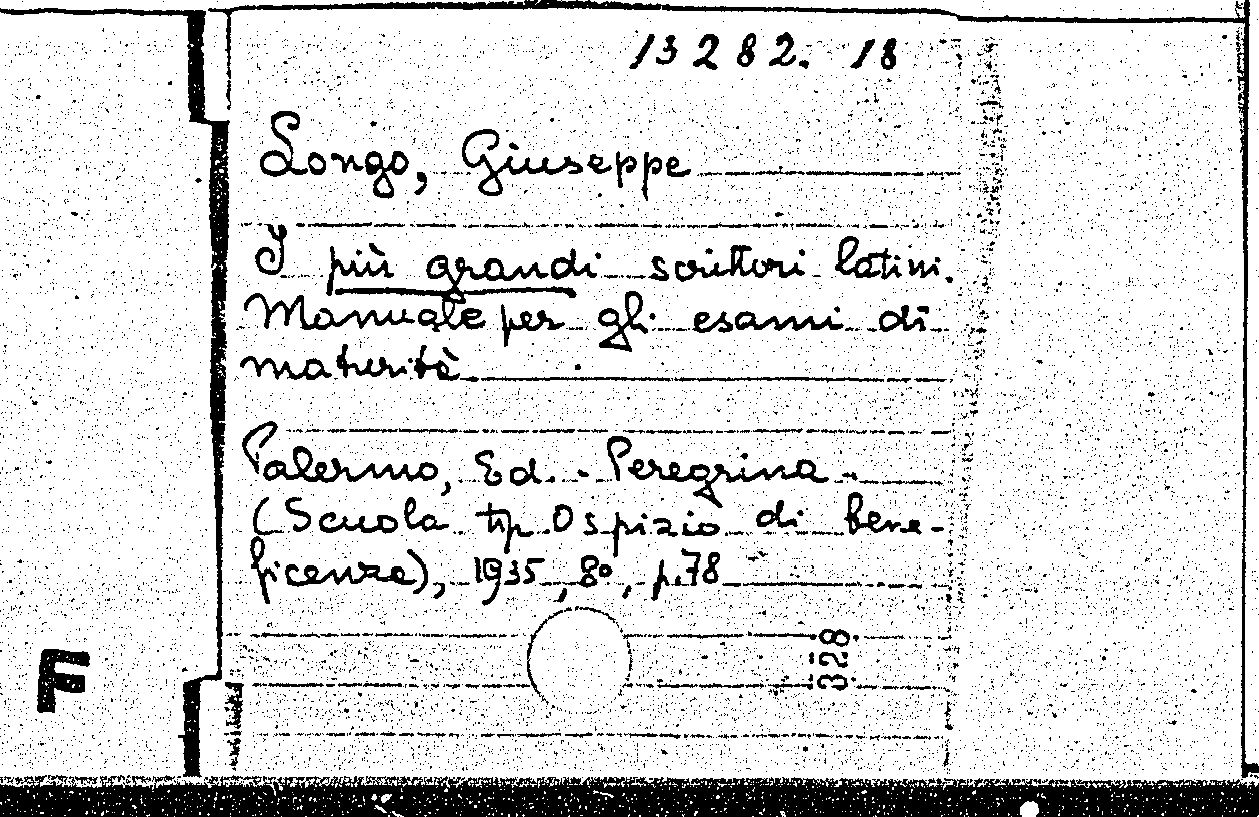 13282. 18
Longo, Giuseppe
I più grandi scrittori latini.
Manuale per gli esami di
maturità
Palermo, Ed. - Peregrina -
(Scuola tip. Ospizio di bene-
ficenza), 1935, 8º, p.78
328
F